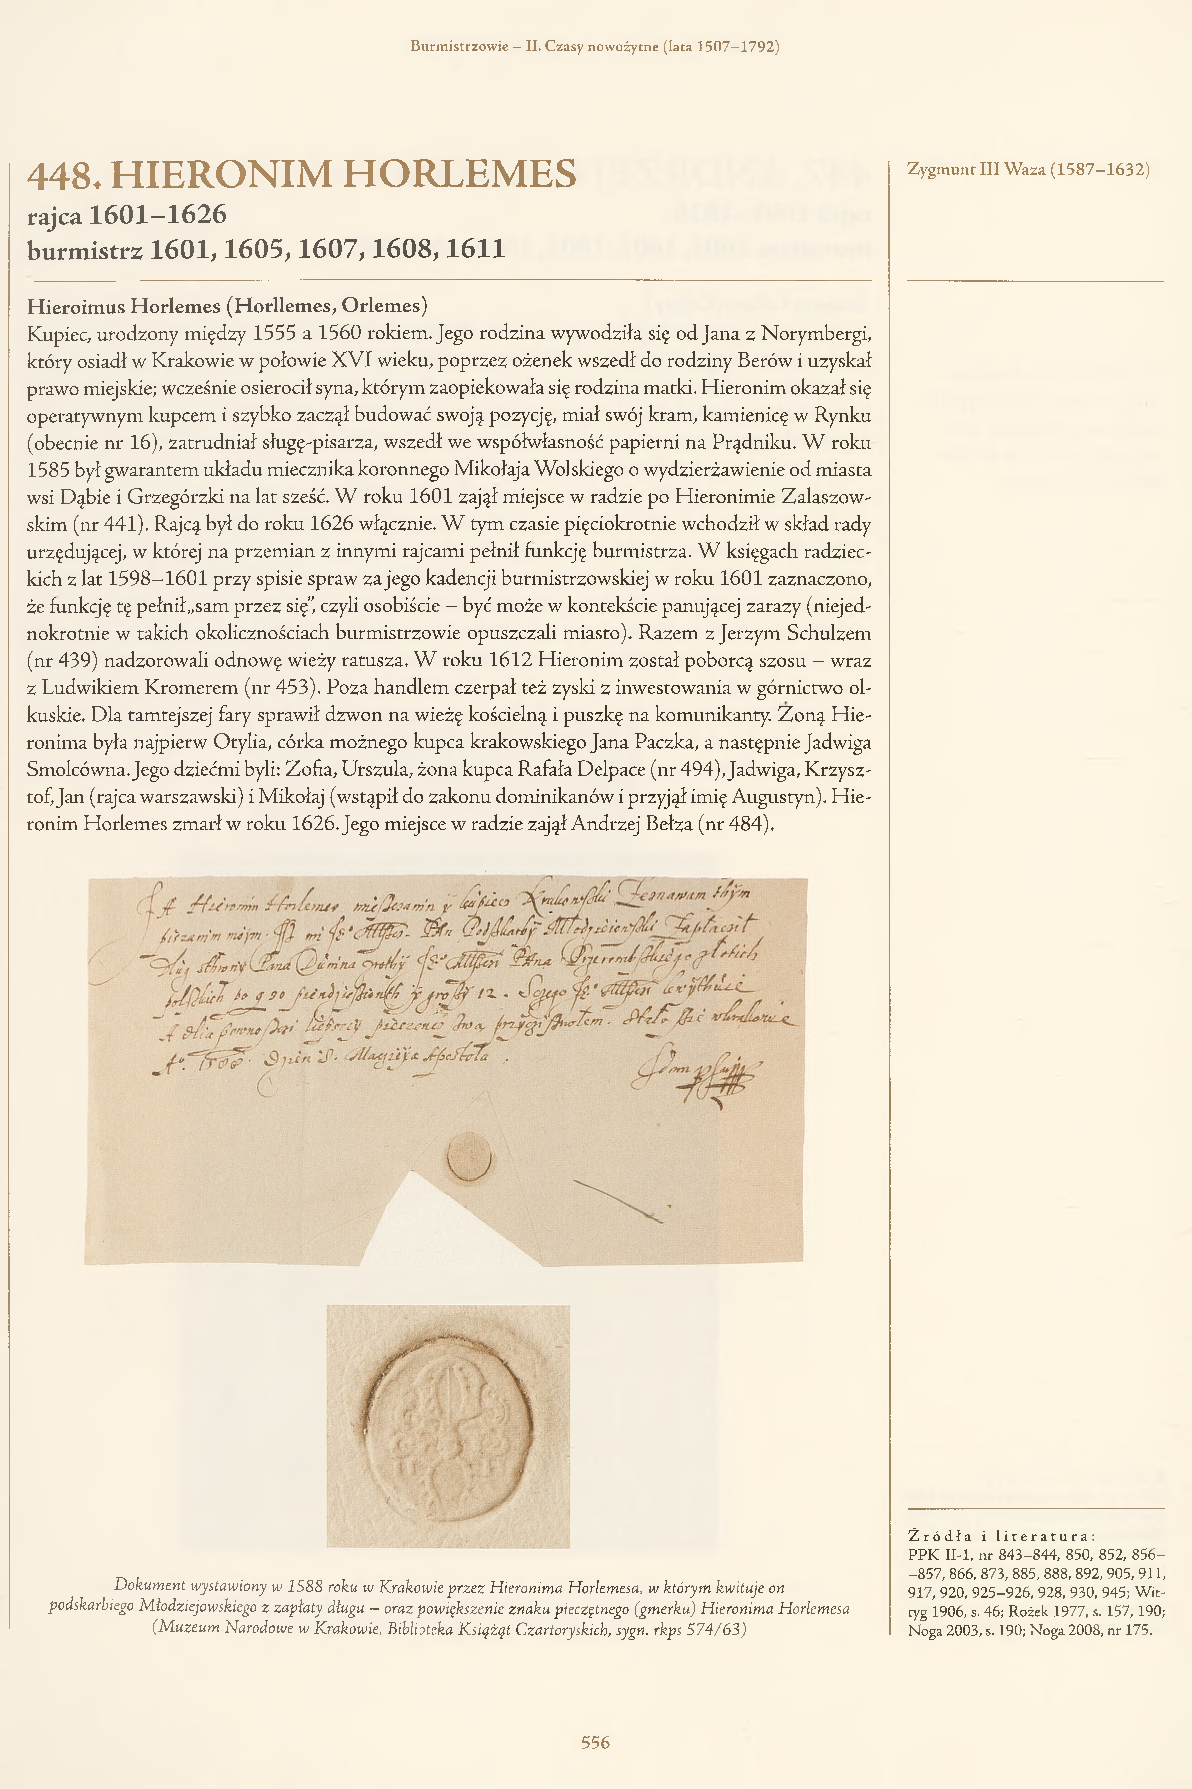 Burmistrzowie – II. Czasy nowożytne (lata 1507–1792)
448. HIERONIM HORLEMES
rajca 1601–1626
burmistrz 1601, 1605, 1607, 1608, 1611
Zygmunt III Waza (1587–1632)
Hieroimus Horlemes (Horllemes, Orlemes)
Kupiec, urodzony między 1555 a 1560 rokiem. Jego rodzina wywodziła się od Jana z Norymbergi,
który osiadł w Krakowie w połowie XVI wieku, poprzez ożenek wszedł do rodziny Berów i uzyskał
prawo miejskie; wcześnie osierocił syna, którym zaopiekowała się rodzina matki. Hieronim okazał się
operatywnym kupcem i szybko zaczął budować swoją pozycję, miał swój kram, kamienicę w Rynku
(obecnie nr 16), zatrudniał sługę-pisarza, wszedł we współwłasność papierni na Prądniku. W roku
1585 był gwarantem układu miecznika koronnego Mikołaja Wolskiego o wydzierżawienie od miasta
wsi Dąbie i Grzegórzki na lat sześć. W roku 1601 zajął miejsce w radzie po Hieronimie Zalaszow-
skim (nr 441). Rajcą był do roku 1626 włącznie. W tym czasie pięciokrotnie wchodził w skład rady
urzędującej, w której na przemian z innymi rajcami pełnił funkcję burmistrza. W księgach radziec-
kich z lat 1598–1601 przy spisie spraw za jego kadencji burmistrzowskiej w roku 1601 zaznaczono,
że funkcję tę pełnił „sam przez się”, czyli osobiście – być może w kontekście panującej zarazy (niejed-
nokrotnie w takich okolicznościach burmistrzowie opuszczali miasto). Razem z Jerzym Schulzem
(nr 439) nadzorowali odnowę wieży ratusza. W roku 1612 Hieronim został poborcą szosu – wraz
z Ludwikiem Kromerem (nr 453). Poza handlem czerpał też zyski z inwestowania w górnictwo ol-
kuskie. Dla tamtejszej fary sprawił dzwon na wieżę kościelną i puszkę na komunikanty. Żoną Hie-
ronima była najpierw Otylia, córka możnego kupca krakowskiego Jana Paczka, a następnie Jadwiga
Smolcówna. Jego dziećmi byli: Zofia, Urszula, żona kupca Rafała Delpace (nr 494), Jadwiga, Krzysz-
tof, Jan (rajca warszawski) i Mikołaj (wstąpił do zakonu dominikanów i przyjął imię Augustyn). Hie-
ronim Horlemes zmarł w roku 1626. Jego miejsce w radzie zajął Andrzej Bełza (nr 484).
Dokument wystawiony w 1588 roku w Krakowie przez Hieronima Horlemesa, w którym kwituje on
podskarbiego Młodziejowskiego z zapłaty długu – oraz powiększenie znaku pieczętnego (gmerku) Hieronima Horlemesa
(Muzeum Narodowe w Krakowie, Biblioteka Książąt Czartoryskich, sygn. rkps 574/63)
Źródła i literatura:
PPK II-1, nr 843–844, 850, 852, 856–
–857, 866, 873, 885, 888, 892, 905, 911,
917, 920, 925–926, 928, 930, 945; Wit-
tyg 1906, s. 46; Rożek 1977, s. 157, 190;
Noga 2003, s. 190; Noga 2008, nr 175.
556